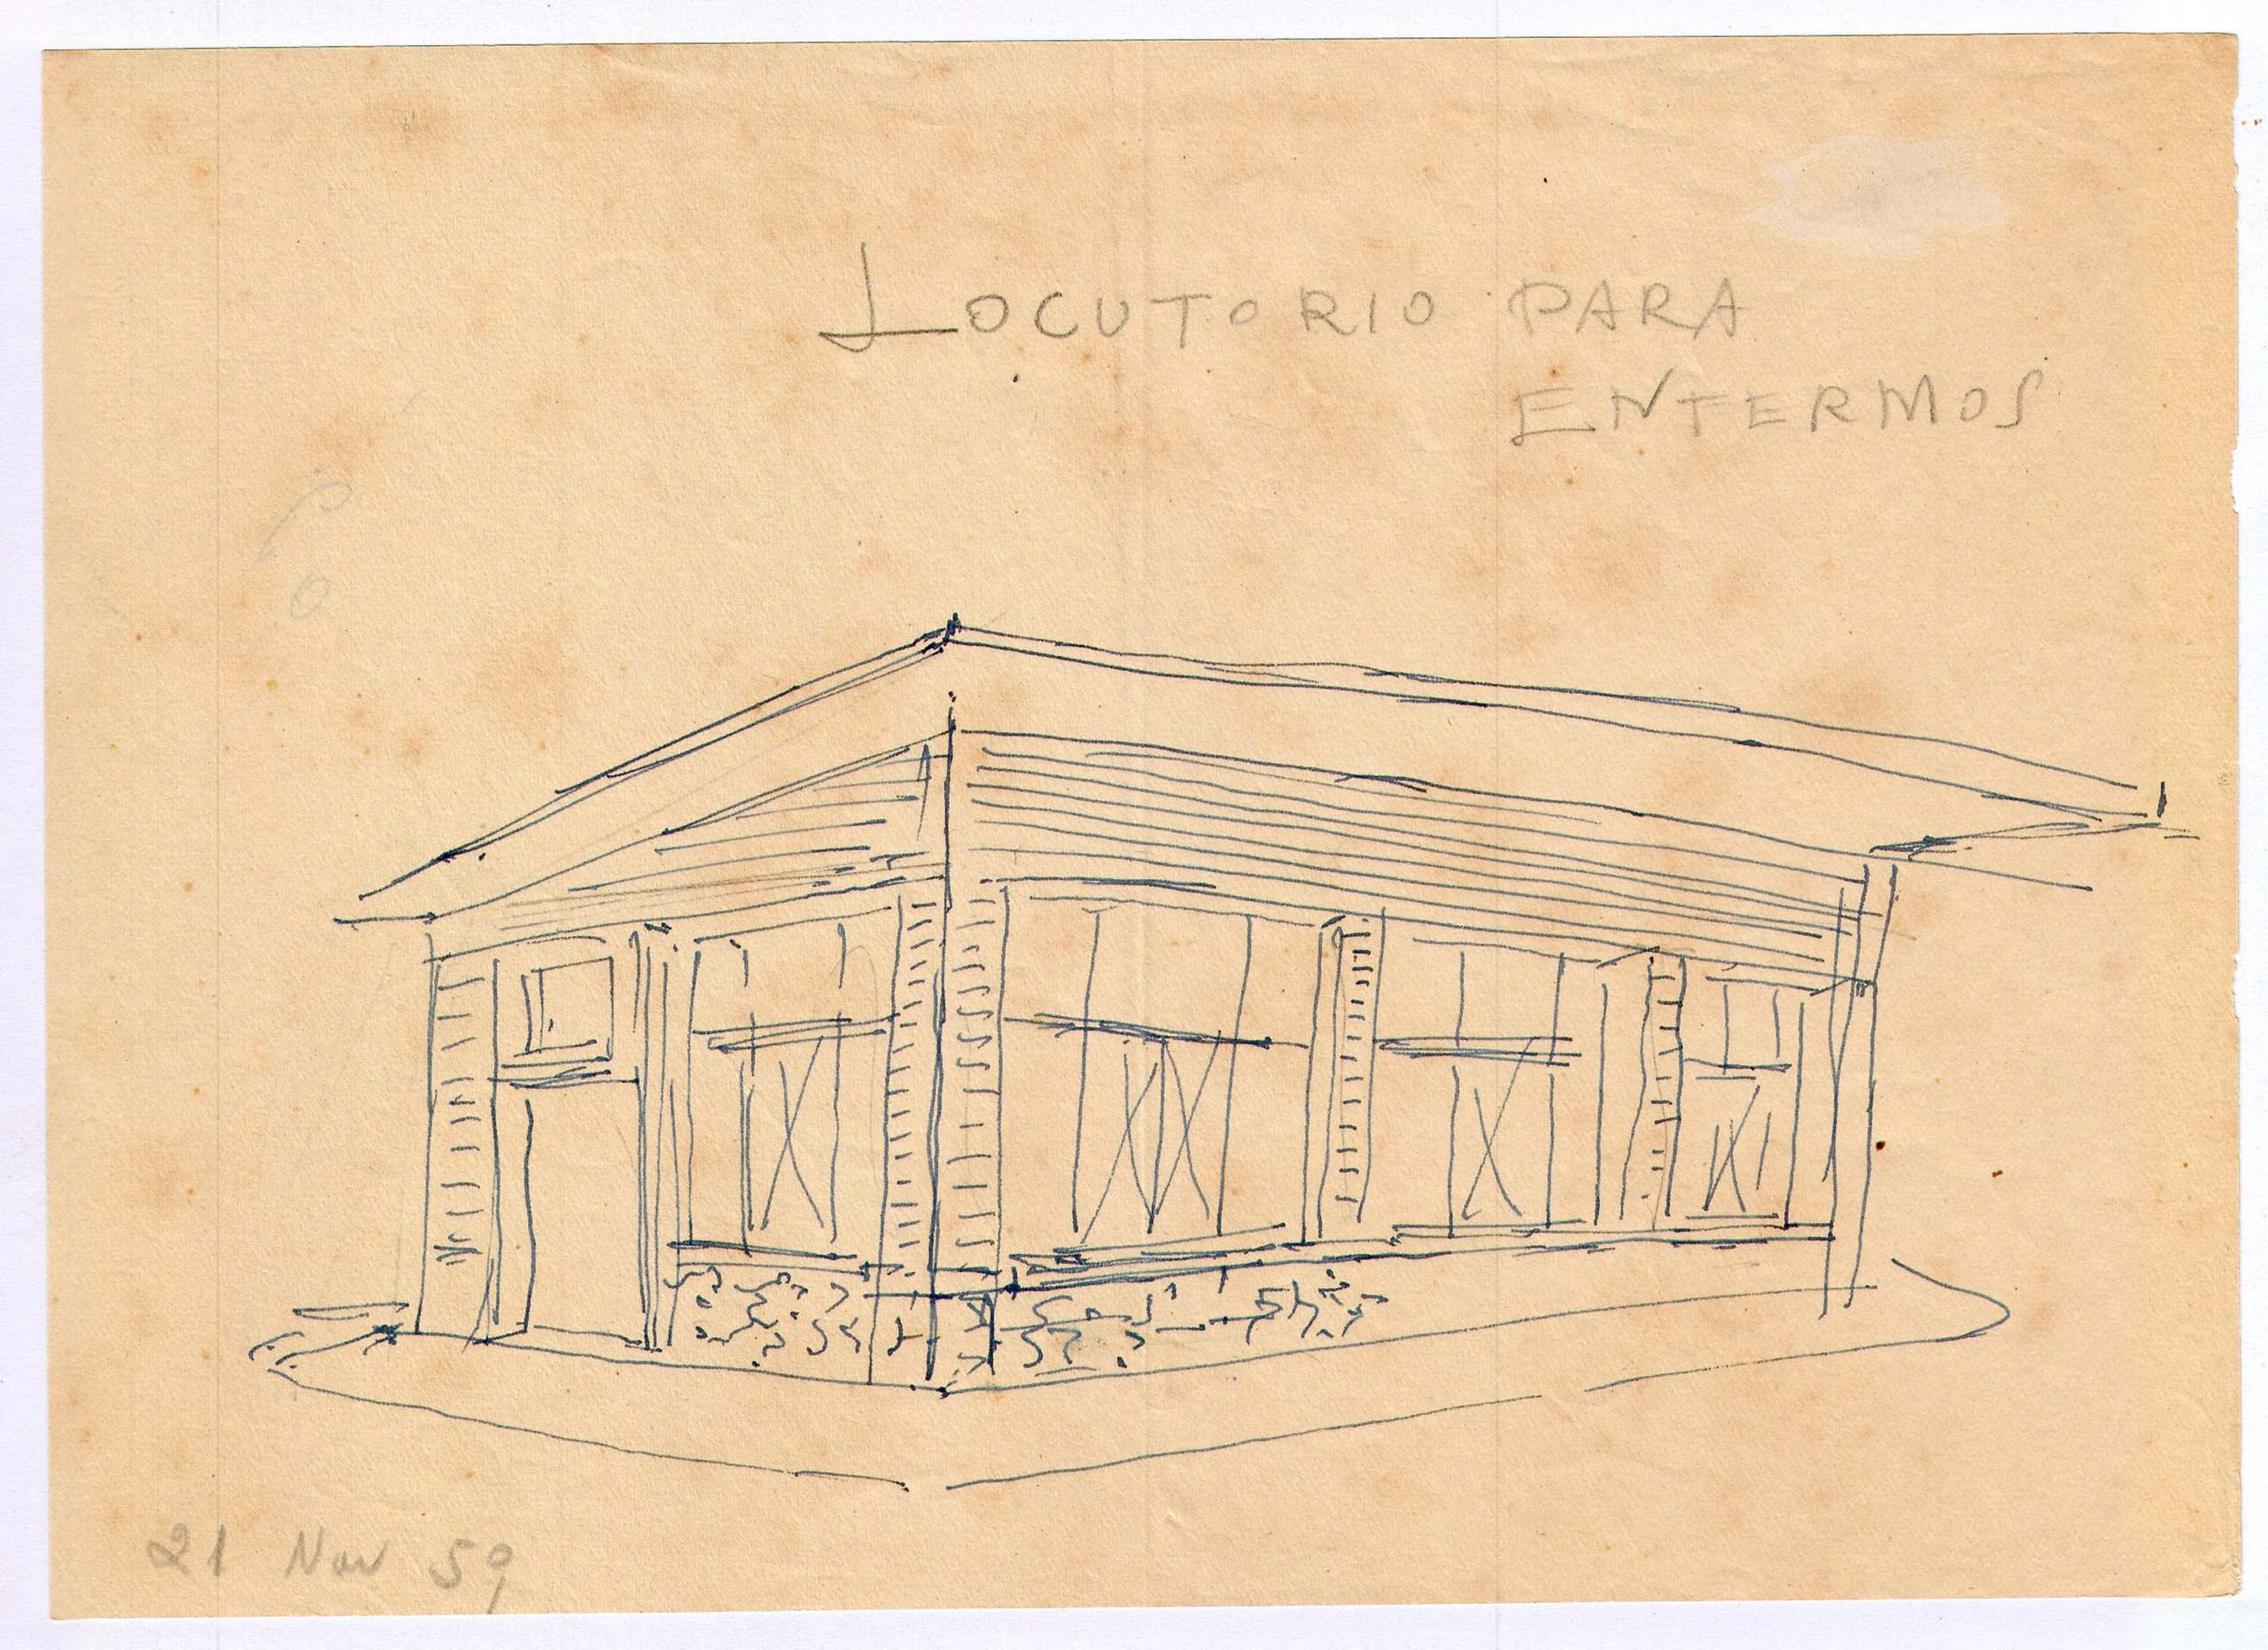 LOCUTORIO PARA
ENFERMOS
21 Nov 59